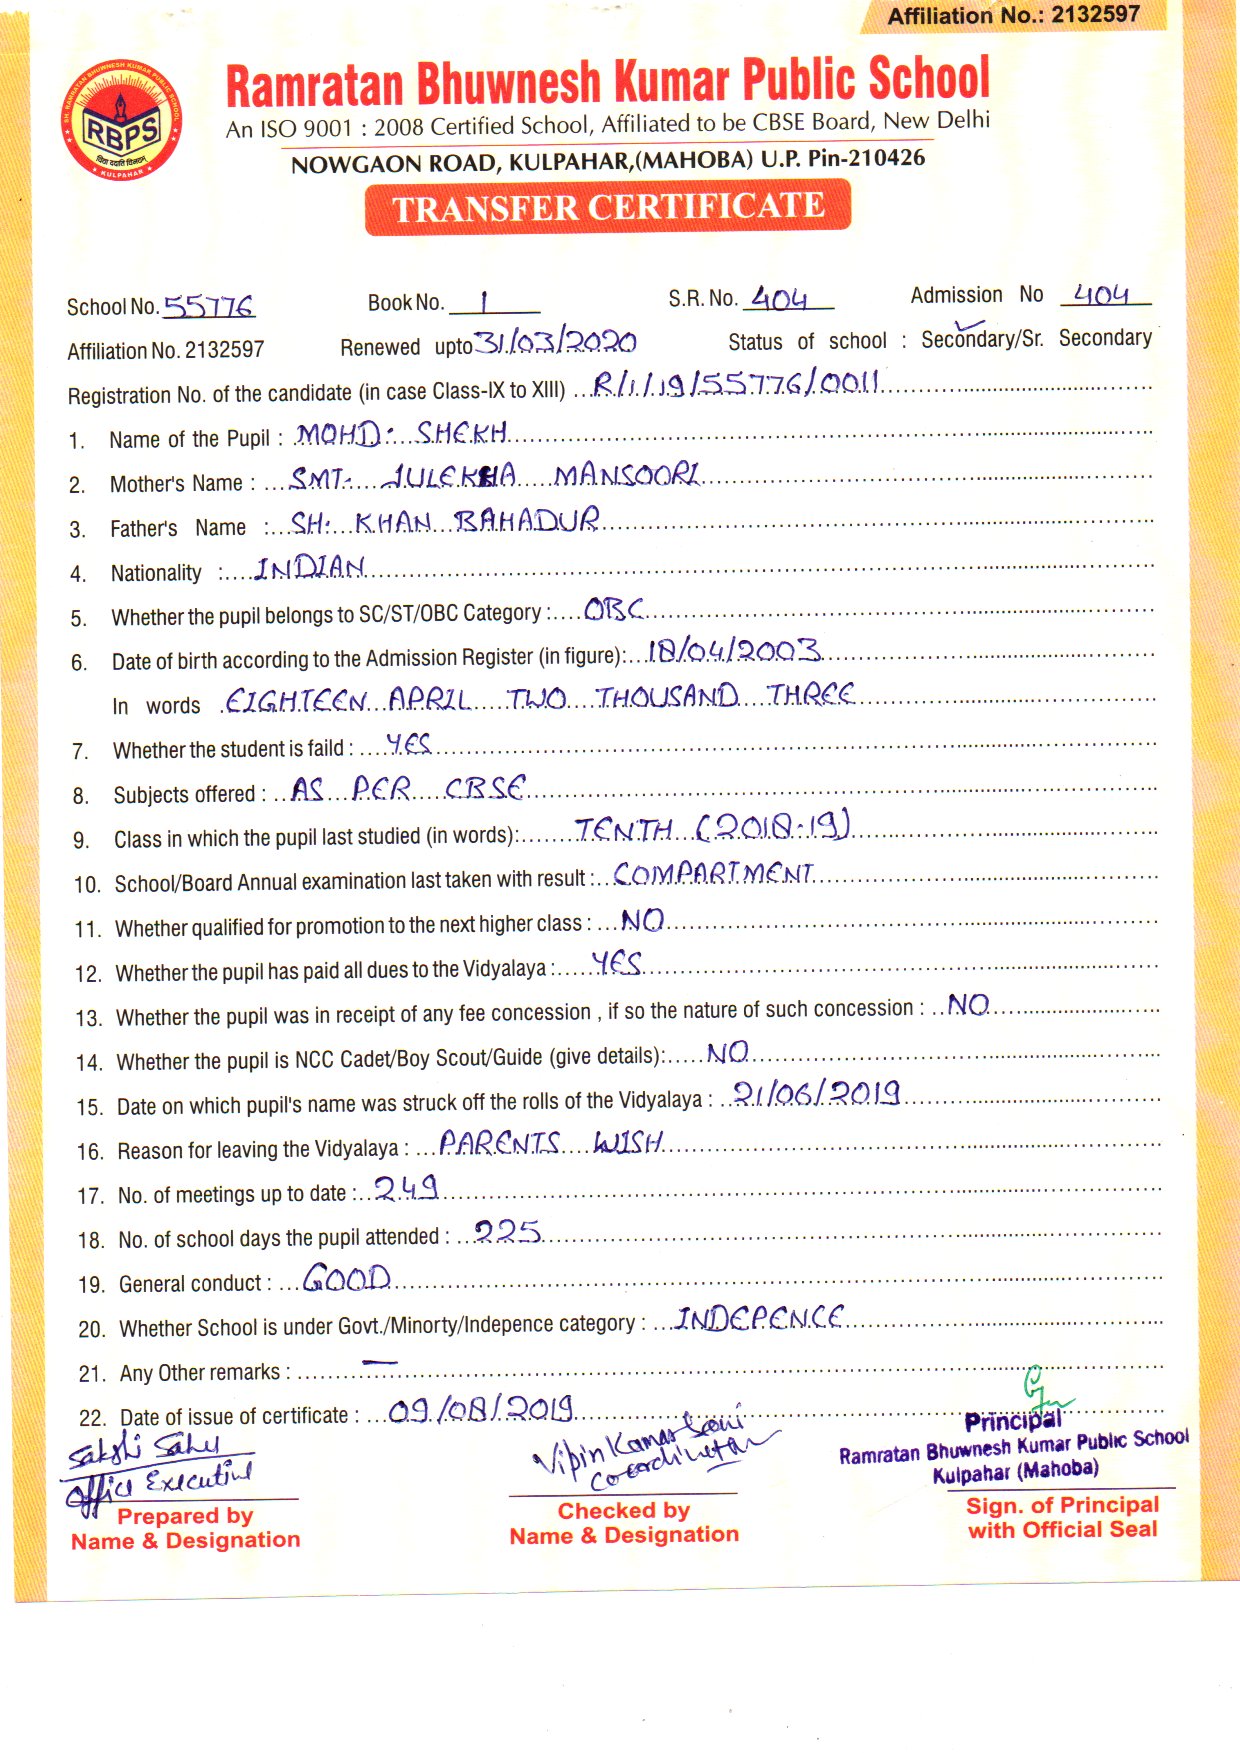 Affiliation No.: 2132597
Ramratan Bhuwnesh Kumar Public School
An ISO 9001 : 2008 Certified School, Affiliated to be CBSE Board, New Delhi
NOWGAON ROAD, KULPAHAR,(MAHOBA) U.P. Pin-210426
SH. RAMRATAN BHUWNESH KUMAR PUBLIC SCHOOL
RBPS
विद्या ददाति विनयम्
KULPAHAR
TRANSFER CERTIFICATE
School No. 55776 Book No. 1 S.R. No. 404 Admission No 404
Affiliation No. 2132597 Renewed upto 31/03/2020 Status of school : Secondary/Sr. Secondary
Registration No. of the candidate (in case Class-IX to XIII) R/1/19/55776/0011
1. Name of the Pupil : MOHD. SHEKH
2. Mother's Name : SMT. JULEKHA MANSOORI
3. Father's Name : SH. KHAN BAHADUR
4. Nationality : INDIAN
5. Whether the pupil belongs to SC/ST/OBC Category : OBC
6. Date of birth according to the Admission Register (in figure): 18/04/2003
In words EIGHTEEN APRIL TWO THOUSAND THREE
7. Whether the student is faild : YES
8. Subjects offered : AS PER CBSE
9. Class in which the pupil last studied (in words): TENTH (2018-19)
10. School/Board Annual examination last taken with result : COMPARTMENT
11. Whether qualified for promotion to the next higher class : NO
12. Whether the pupil has paid all dues to the Vidyalaya : YES
13. Whether the pupil was in receipt of any fee concession , if so the nature of such concession : NO
14. Whether the pupil is NCC Cadet/Boy Scout/Guide (give details): NO
15. Date on which pupil's name was struck off the rolls of the Vidyalaya : 21/06/2019
16. Reason for leaving the Vidyalaya : PARENTS WISH
17. No. of meetings up to date : 249
18. No. of school days the pupil attended : 225
19. General conduct : GOOD
20. Whether School is under Govt./Minorty/Indepence category : INDEPENCE
21. Any Other remarks : —
22. Date of issue of certificate : 09/08/2019
Sakshi Sahu
Office Executive
Prepared by
Name & Designation
Vipin Kumar Soni
Coordinator
Checked by
Name & Designation
Principal
Ramratan Bhuwnesh Kumar Public School
Kulpahar (Mahoba)
Sign. of Principal
with Official Seal